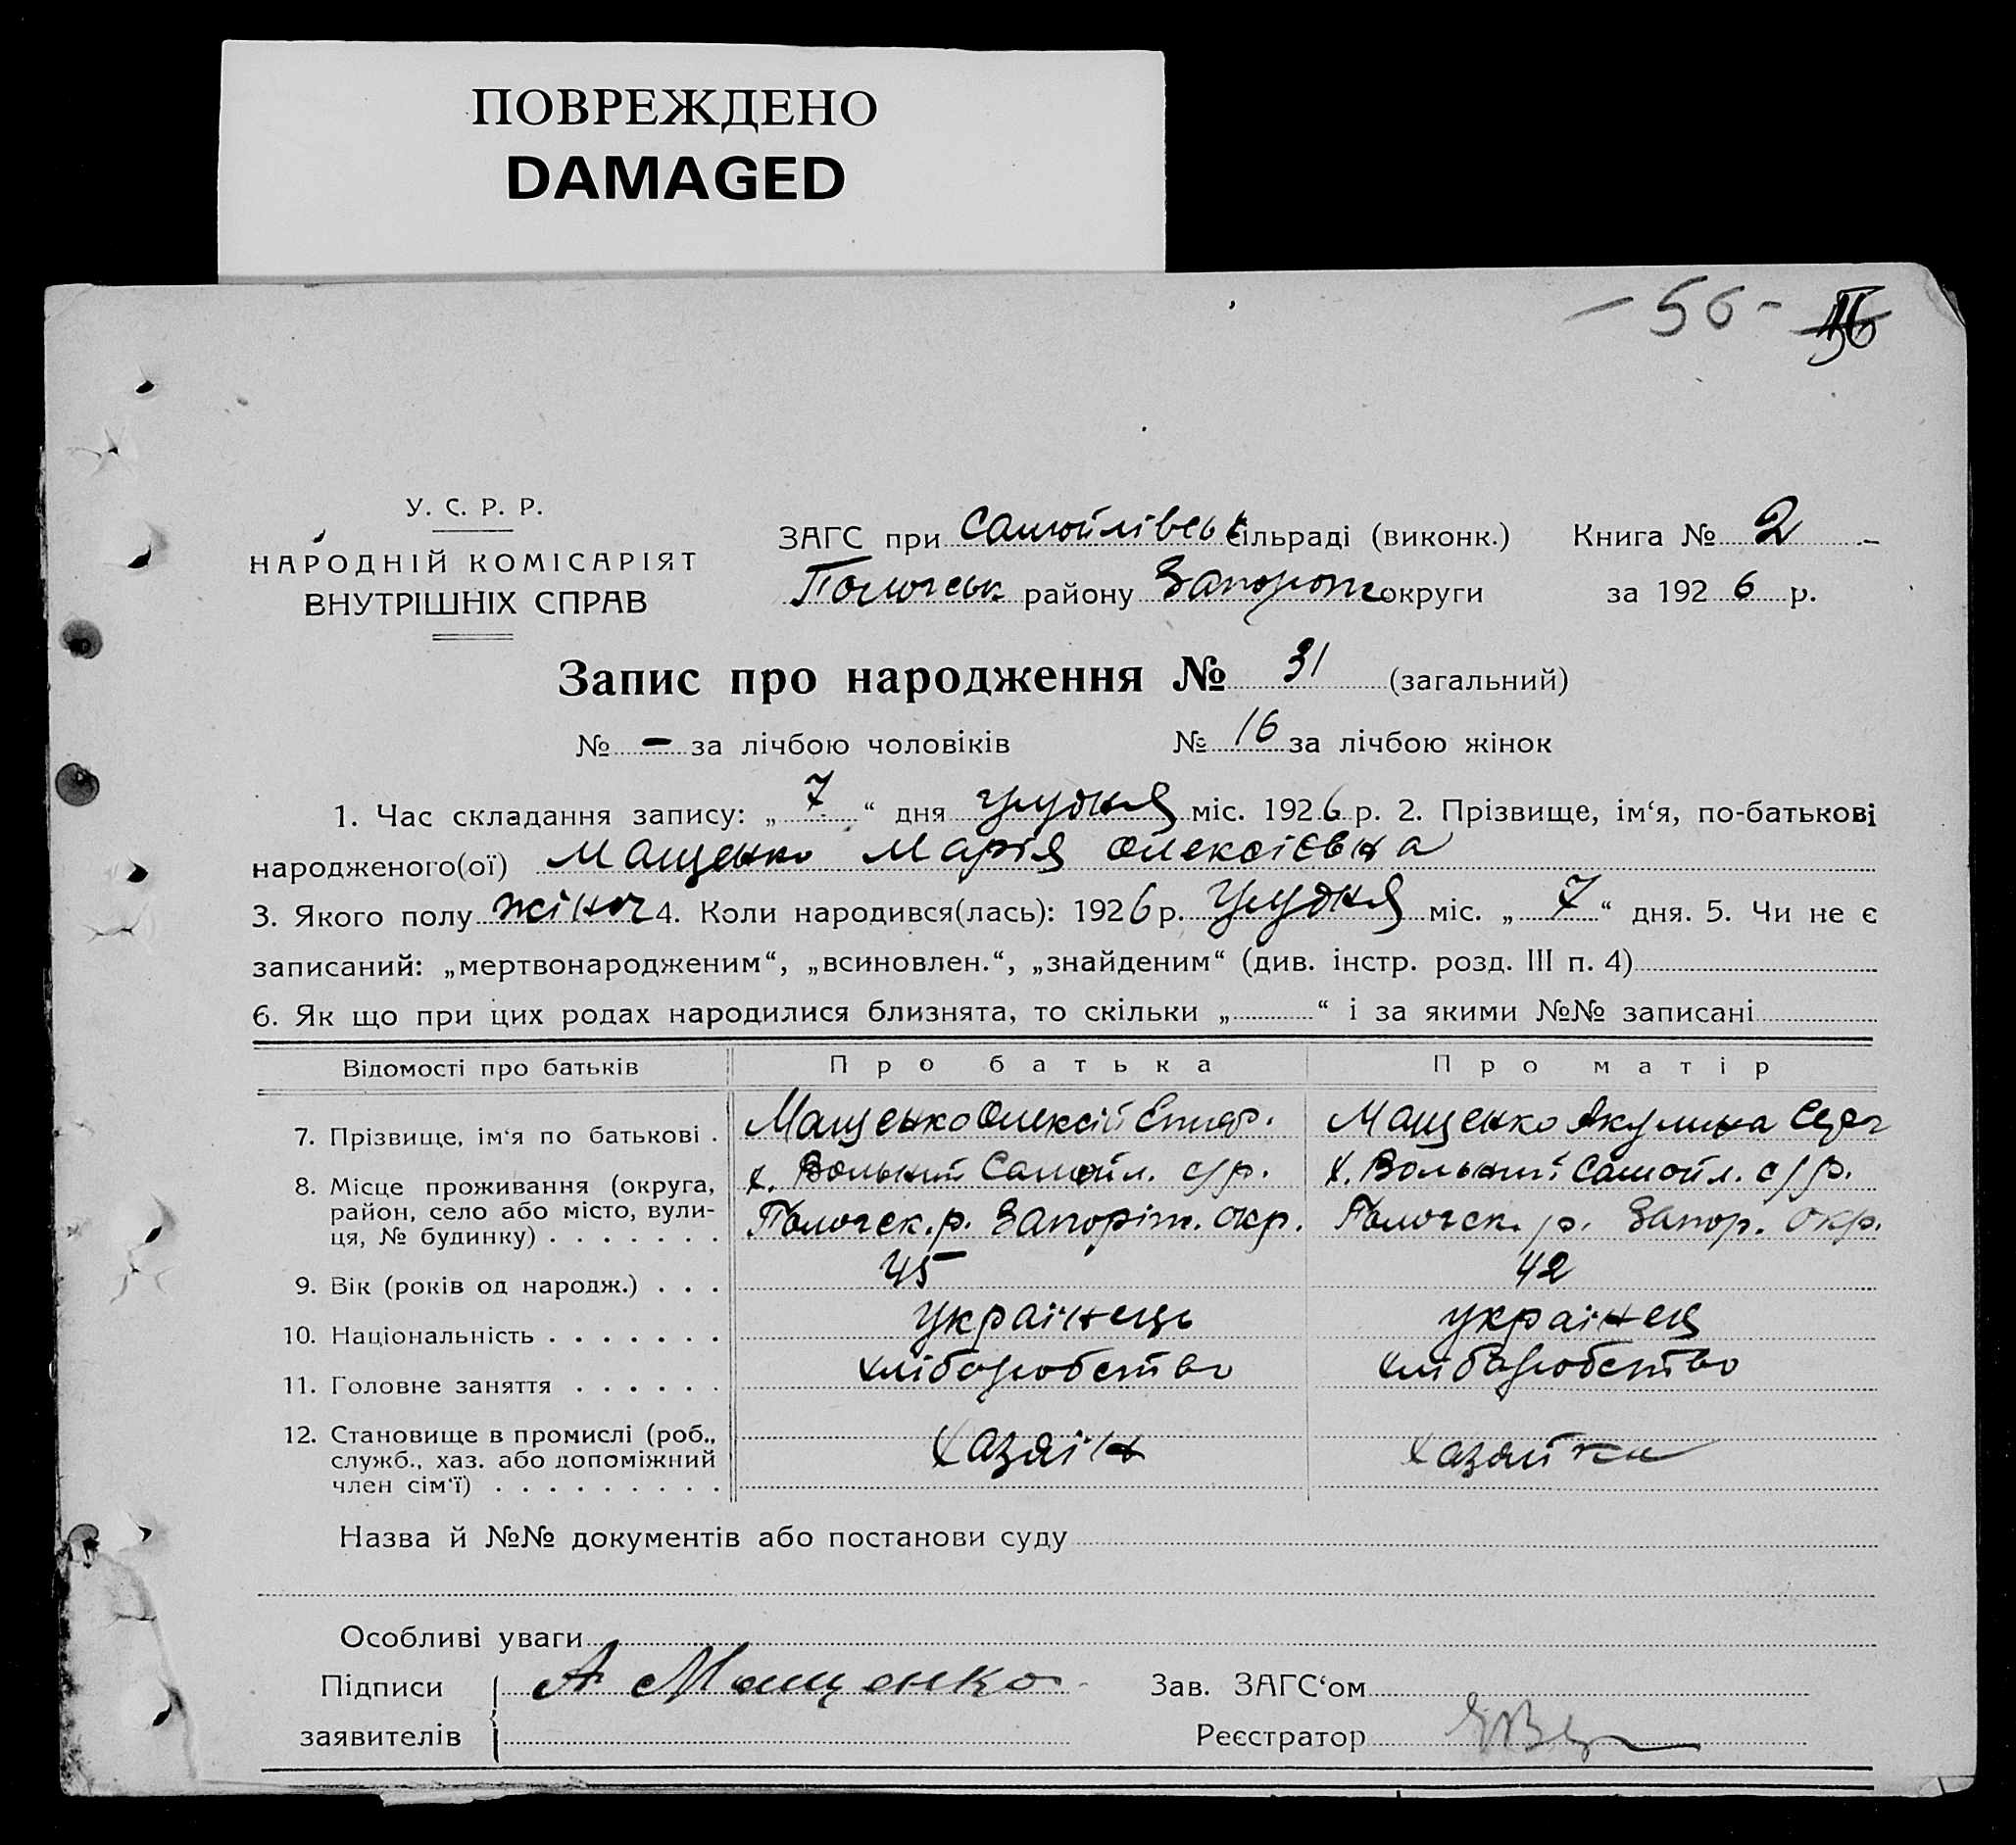 ПОВРЕЖДЕНО
DAMAGED
- 56 -
У. С. Р. Р.
НАРОДНІЙ КОМІСАРІЯТ
ВНУТРІШНІХ СПРАВ
ЗАГС при Самойлівськ сільраді (виконк.) Книга № 2
Пологськ району Запоріж округи за 1926 р.
Запис про народження № 31 (загальний)
№ - за лічбою чоловіків № 16 за лічбою жінок
1. Час складання запису: „ 7 “ дня грудня міс. 1926 р. 2. Прізвище, ім‘я, по-батькові
народженого(ої) Мащенко Марія Олексієвна
3. Якого полу жіноч 4. Коли народився(лась): 1926 р. грудня міс. „ 7 “ дня. 5. Чи не є
записаний: „мертвонародженим“, „всиновлен.“, „знайденим“ (див. інстр. розд. III п. 4)
6. Як що при цих родах народилися близнята, то скільки „ “ і за якими №№ записані
Відомості про батьків Про батька Про матір
7. Прізвище, ім‘я по батькові . Мащенко Олексій Мащенко Акулина
8. Місце проживання (округа, х. Вольний Самойл. с/р. х. Вольний Самойл. с/р.
район, село або місто, вули-
ця, № будинку) . . . . . . . Пологск. р. Запоріж. окр. Пологск. р. Запор. окр.
9. Вік (років од народж.) . . . 45 42
10. Національність . . . . . . . українець українця
11. Головне заняття . . . . . . хліборобство хліборобство
12. Становище в промислі (роб., хазяїн хазяйка
служб., хаз. або допоміжний
член сім‘ї) . . . . . . . . .
Назва й №№ документів або постанови суду
Особливі уваги
Підписи А Мащенко Зав. ЗАГС‘ом
заявителів Реєстратор